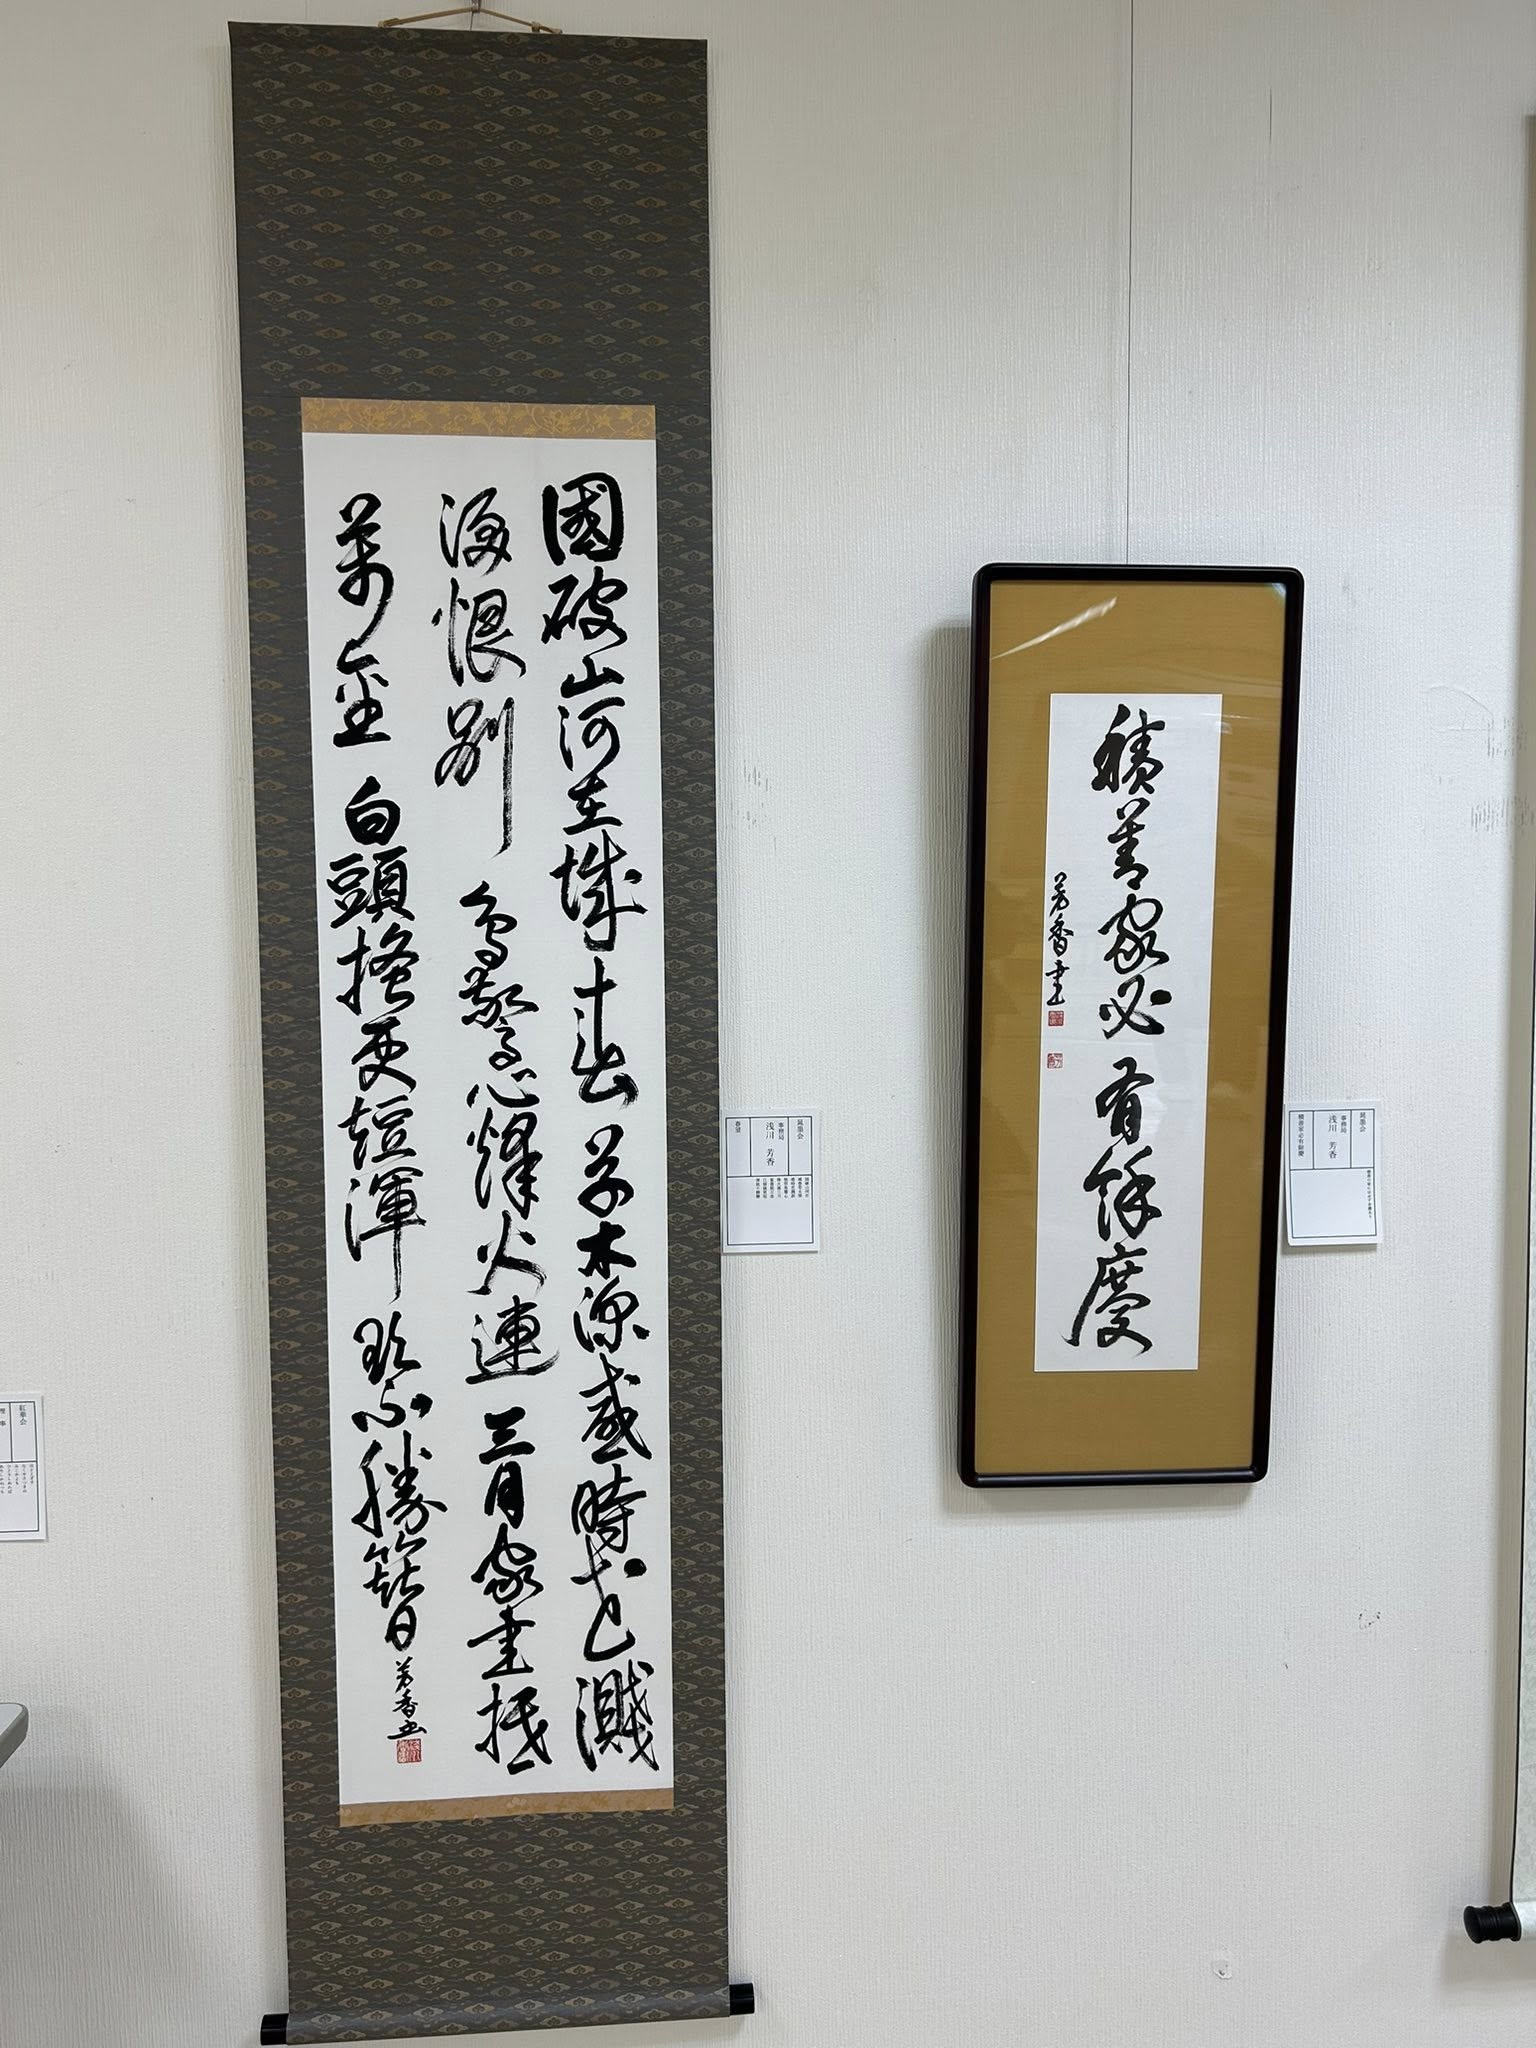 國破山河在城春草木深感時花濺
涙恨別鳥驚心烽火連三月家書抵
萬金白頭搔更短渾欲不勝簪
芳香書
事務局
浅川 芳香
春望
積善家必有餘慶
芳香書
事務局
浅川 芳香
積善家必有餘慶
紅華会
理事